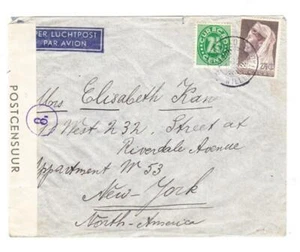 PER LUCHTPOST
PAR AVION
CURAÇAO
7½
CENT
POSTCENSUUR
8
Mrs Elisabeth Kan
West 232. Street at
Riverdale Avenue
Appartment W 53
New-York
North-America